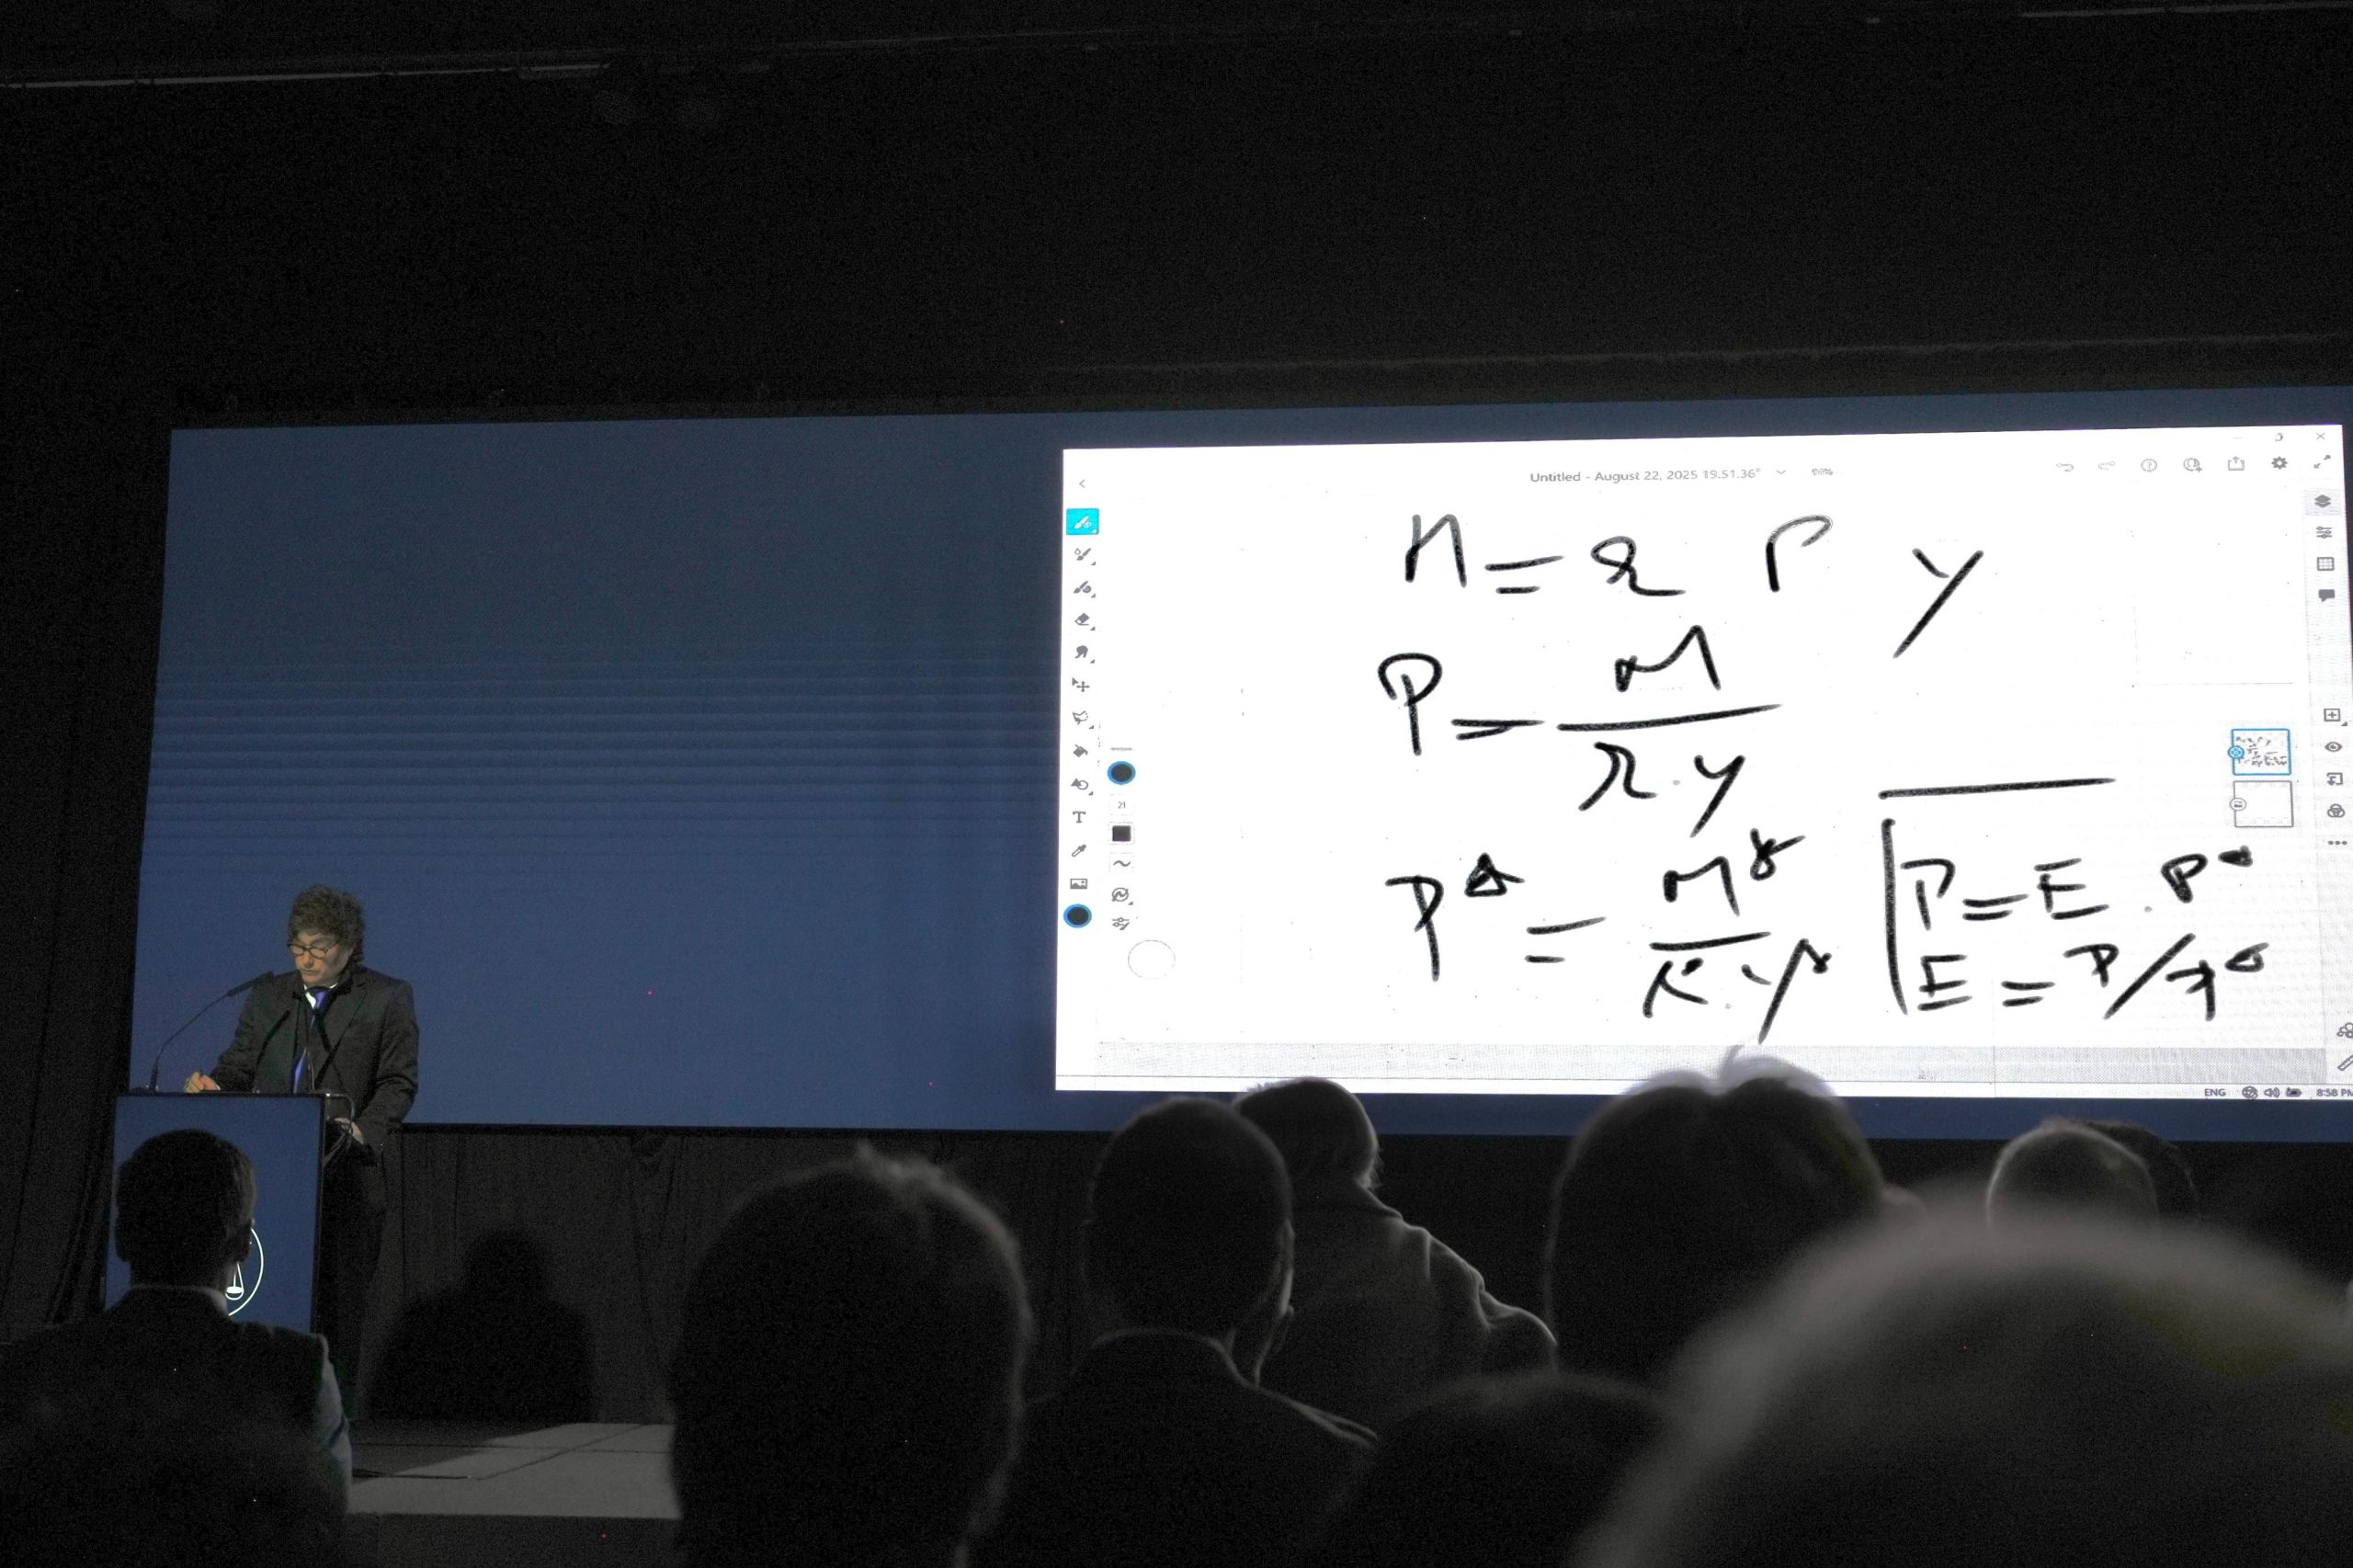 Untitled - August 22, 2025 19.51.36
M = k P y
P = M / k . y
P* = M* / k* . y*
P = E . P*
E = P / P*
21
T
ENG 8:58 PM